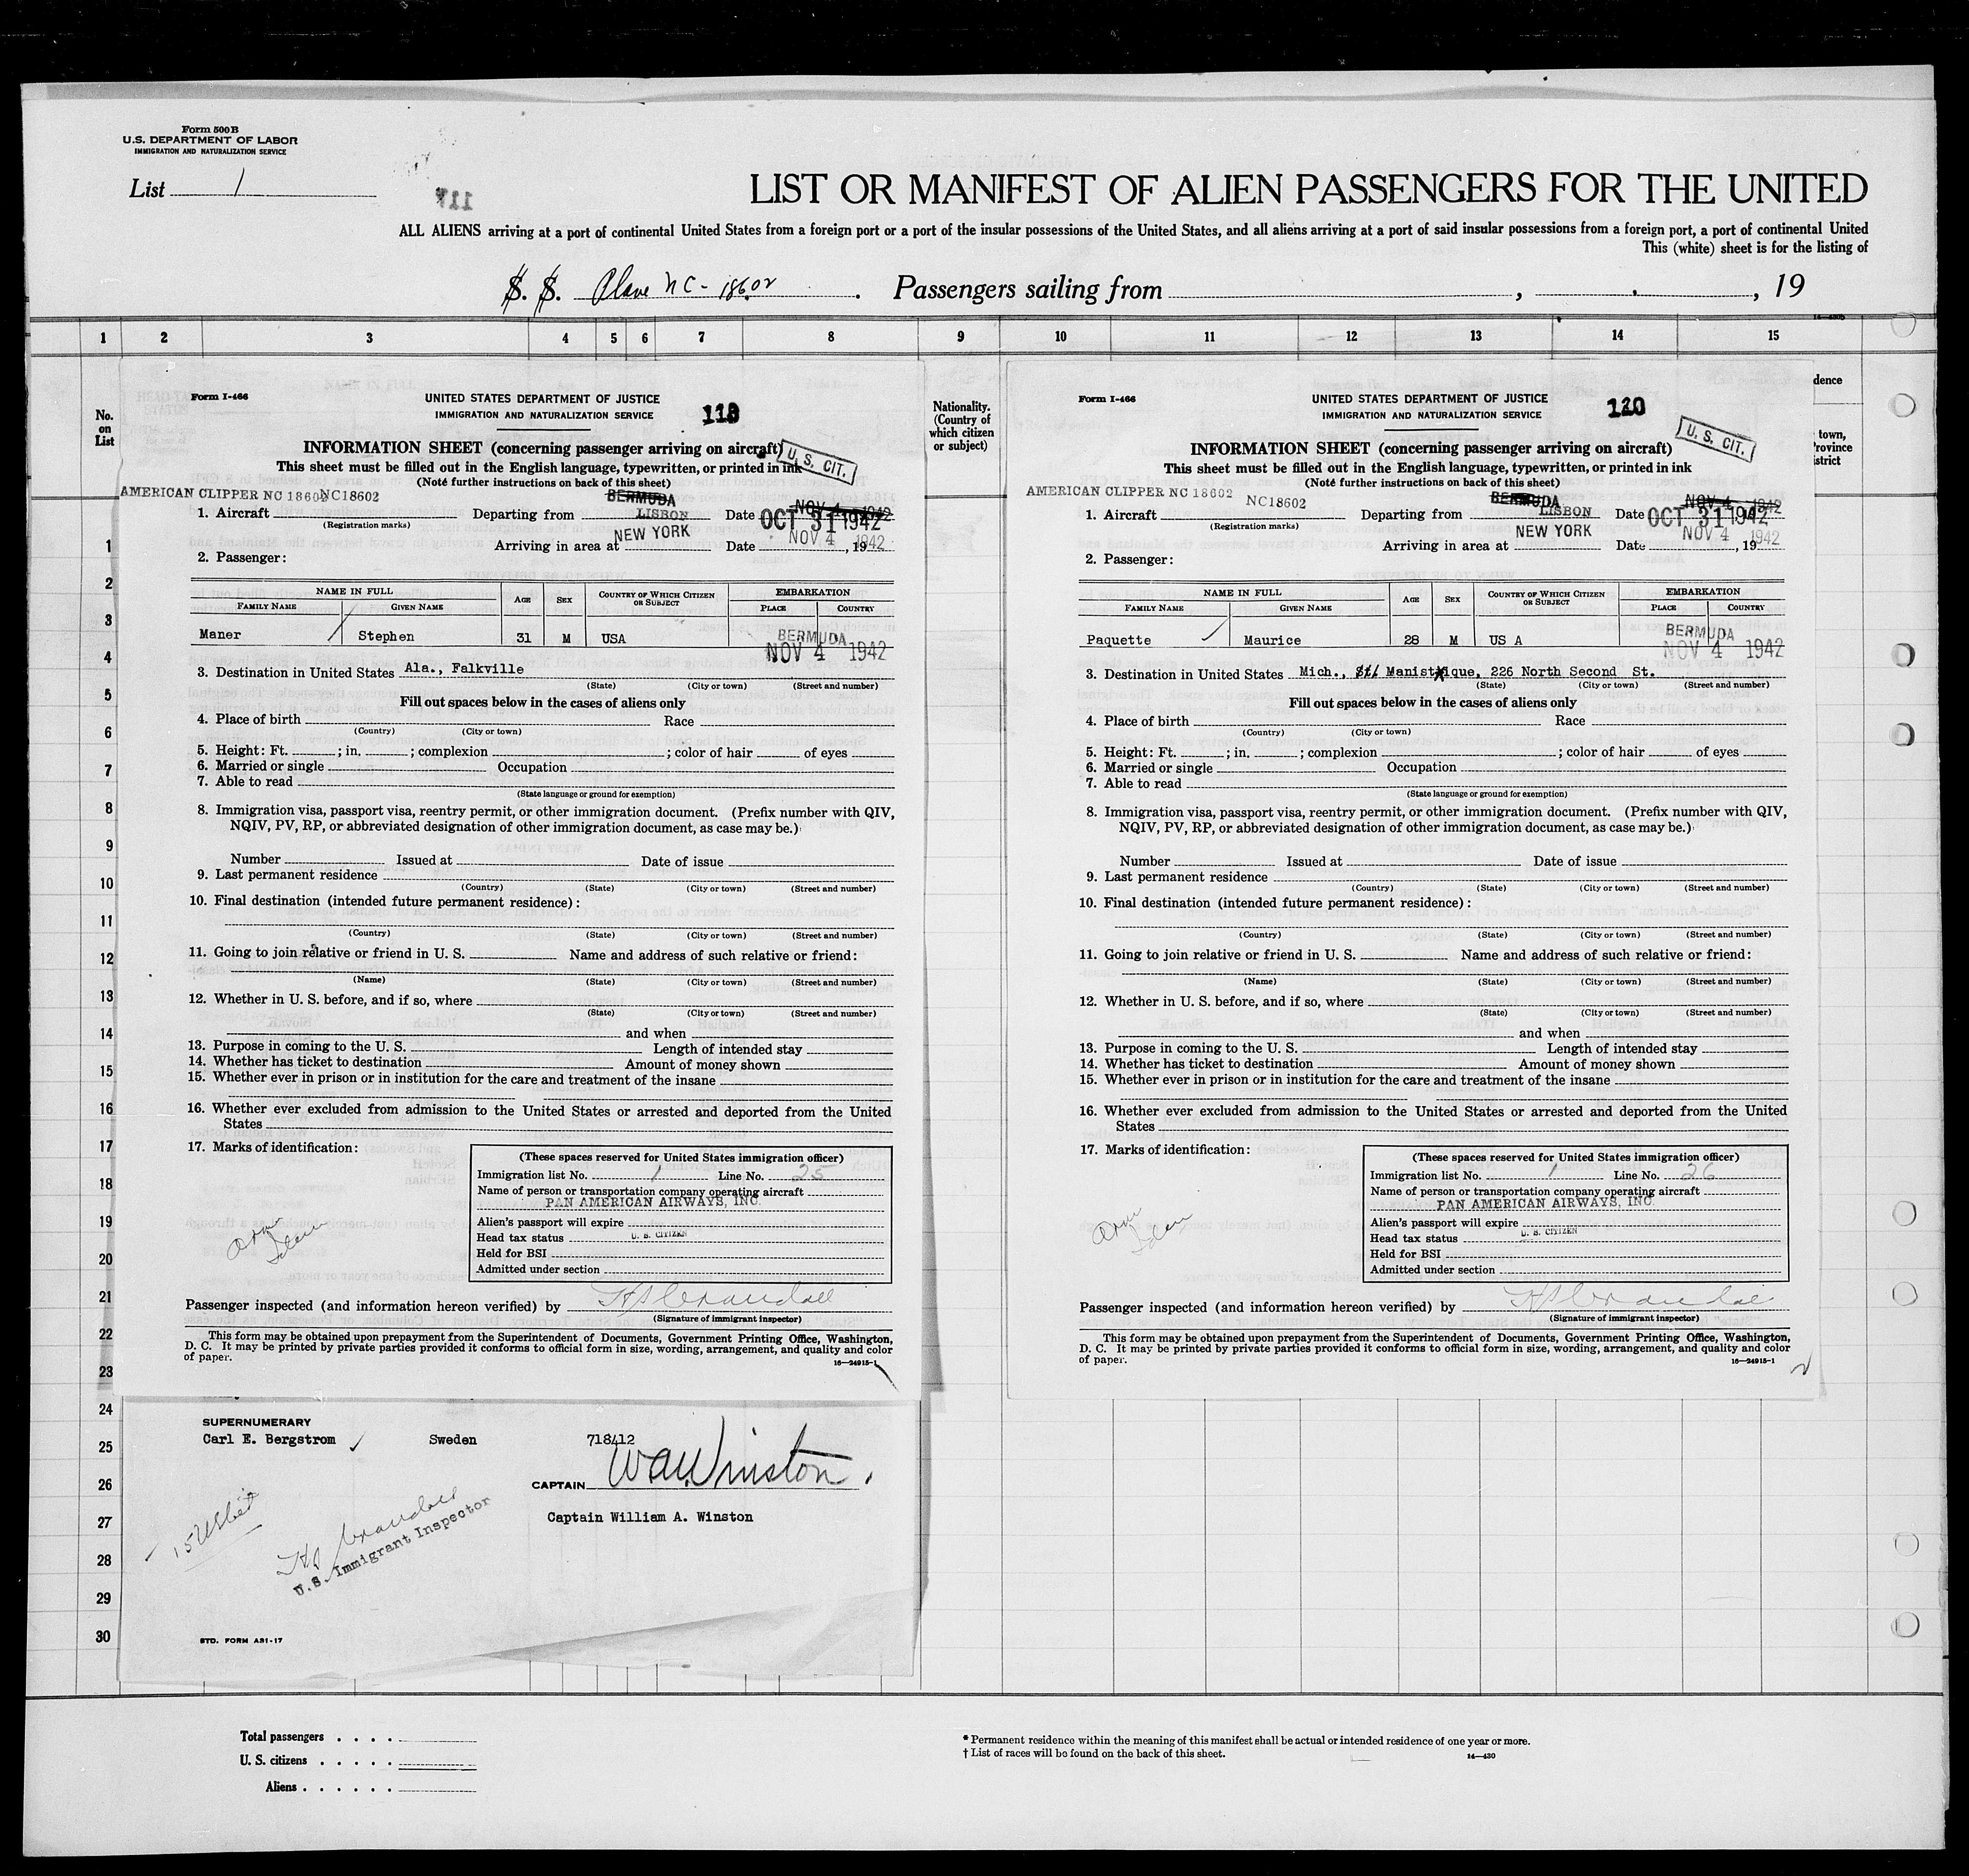 Form 500B
U.S. DEPARTMENT OF LABOR
IMMIGRATION AND NATURALIZATION SERVICE
List 1
117
LIST OR MANIFEST OF ALIEN PASSENGERS FOR THE UNITED
ALL ALIENS arriving at a port of continental United States from a foreign port or a port of the insular possessions of the United States, and all aliens arriving at a port of said insular possessions from a foreign port, a port of continental United
This (white) sheet is for the listing of
S. S. Plane NC-18602. Passengers sailing from , , 19
1 2 3 4 5 6 7 8 9 10 11 12 13 14 15
No. on List
Nationality. (Country of which citizen or subject)
dence
town,
rovince
strict
1
2
3
4
5
6
7
8
9
10
11
12
13
14
15
16
17
18
19
20
21
22
23
24
25
26
27
28
29
30
Form I-466
UNITED STATES DEPARTMENT OF JUSTICE
IMMIGRATION AND NATURALIZATION SERVICE
INFORMATION SHEET (concerning passenger arriving on aircraft)
U. S. CIT.
This sheet must be filled out in the English language, typewritten, or printed in ink
(Note further instructions on back of this sheet)
AMERICAN CLIPPER NC 18602 NC18602
BERMUDA NOV 4 1942
1. Aircraft Departing from LISBON Date OCT 31 1942
(Registration marks)
Arriving in area at NEW YORK Date NOV 4, 1942
2. Passenger:
NAME IN FULL AGE SEX COUNTRY OF WHICH CITIZEN OR SUBJECT EMBARKATION
FAMILY NAME GIVEN NAME PLACE COUNTRY
Maner Stephen 31 M USA BERMUDA
NOV 4 1942
3. Destination in United States Ala., Falkville
(State) (City or town) (Street and number)
Fill out spaces below in the cases of aliens only
4. Place of birth Race
(Country) (City or town)
5. Height: Ft. ; in. ; complexion ; color of hair of eyes
6. Married or single Occupation
7. Able to read
(State language or ground for exemption)
8. Immigration visa, passport visa, reentry permit, or other immigration document. (Prefix number with QIV,
NQIV, PV, RP, or abbreviated designation of other immigration document, as case may be.)
Number Issued at Date of issue
9. Last permanent residence
(Country) (State) (City or town) (Street and number)
10. Final destination (intended future permanent residence):
(Country) (State) (City or town) (Street and number)
11. Going to join relative or friend in U. S. Name and address of such relative or friend:
(Name) (State) (City or town) (Street and number)
12. Whether in U. S. before, and if so, where
(State) (City or town) (Street and number)
and when
13. Purpose in coming to the U. S. Length of intended stay
14. Whether has ticket to destination Amount of money shown
15. Whether ever in prison or in institution for the care and treatment of the insane
16. Whether ever excluded from admission to the United States or arrested and deported from the United
States
17. Marks of identification:
(These spaces reserved for United States immigration officer)
Immigration list No. 1 Line No. 25
Name of person or transportation company operating aircraft
PAN AMERICAN AIRWAYS, INC.
Alien's passport will expire
Head tax status U. S. CITIZEN
Held for BSI
Admitted under section
Passenger inspected (and information hereon verified) by
(Signature of immigrant inspector)
This form may be obtained upon prepayment from the Superintendent of Documents, Government Printing Office, Washington,
D. C. It may be printed by private parties provided it conforms to official form in size, wording, arrangement, and quality and color
of paper.
16—24915-1
Form I-466
UNITED STATES DEPARTMENT OF JUSTICE
IMMIGRATION AND NATURALIZATION SERVICE
120
INFORMATION SHEET (concerning passenger arriving on aircraft)
U. S. CIT.
This sheet must be filled out in the English language, typewritten, or printed in ink
(Note further instructions on back of this sheet)
AMERICAN CLIPPER NC 18602 NC18602
BERMUDA NOV 4 1942
1. Aircraft Departing from LISBON Date OCT 31 1942
(Registration marks)
Arriving in area at NEW YORK Date NOV 4, 1942
2. Passenger:
NAME IN FULL AGE SEX COUNTRY OF WHICH CITIZEN OR SUBJECT EMBARKATION
FAMILY NAME GIVEN NAME PLACE COUNTRY
Paquette Maurice 28 M US A BERMUDA
NOV 4 1942
3. Destination in United States Mich., Manistique, 226 North Second St.
(State) (City or town) (Street and number)
Fill out spaces below in the cases of aliens only
4. Place of birth Race
(Country) (City or town)
5. Height: Ft. ; in. ; complexion ; color of hair of eyes
6. Married or single Occupation
7. Able to read
(State language or ground for exemption)
8. Immigration visa, passport visa, reentry permit, or other immigration document. (Prefix number with QIV,
NQIV, PV, RP, or abbreviated designation of other immigration document, as case may be.)
Number Issued at Date of issue
9. Last permanent residence
(Country) (State) (City or town) (Street and number)
10. Final destination (intended future permanent residence):
(Country) (State) (City or town) (Street and number)
11. Going to join relative or friend in U. S. Name and address of such relative or friend:
(Name) (State) (City or town) (Street and number)
12. Whether in U. S. before, and if so, where
(State) (City or town) (Street and number)
and when
13. Purpose in coming to the U. S. Length of intended stay
14. Whether has ticket to destination Amount of money shown
15. Whether ever in prison or in institution for the care and treatment of the insane
16. Whether ever excluded from admission to the United States or arrested and deported from the United
States
17. Marks of identification:
(These spaces reserved for United States immigration officer)
Immigration list No. 1 Line No. 26
Name of person or transportation company operating aircraft
PAN AMERICAN AIRWAYS, INC.
Alien's passport will expire
Head tax status U. S. CITIZEN
Held for BSI
Admitted under section
Passenger inspected (and information hereon verified) by
(Signature of immigrant inspector)
This form may be obtained upon prepayment from the Superintendent of Documents, Government Printing Office, Washington,
D. C. It may be printed by private parties provided it conforms to official form in size, wording, arrangement, and quality and color
of paper.
16—24915-1
2
SUPERNUMERARY
Carl E. Bergstrom Sweden 718412
CAPTAIN W A Winston
Captain William A. Winston
U.S. Immigrant Inspector
STD. FORM A31-17
Total passengers
U. S. citizens
Aliens
* Permanent residence within the meaning of this manifest shall be actual or intended residence of one year or more.
† List of races will be found on the back of this sheet.
14—430